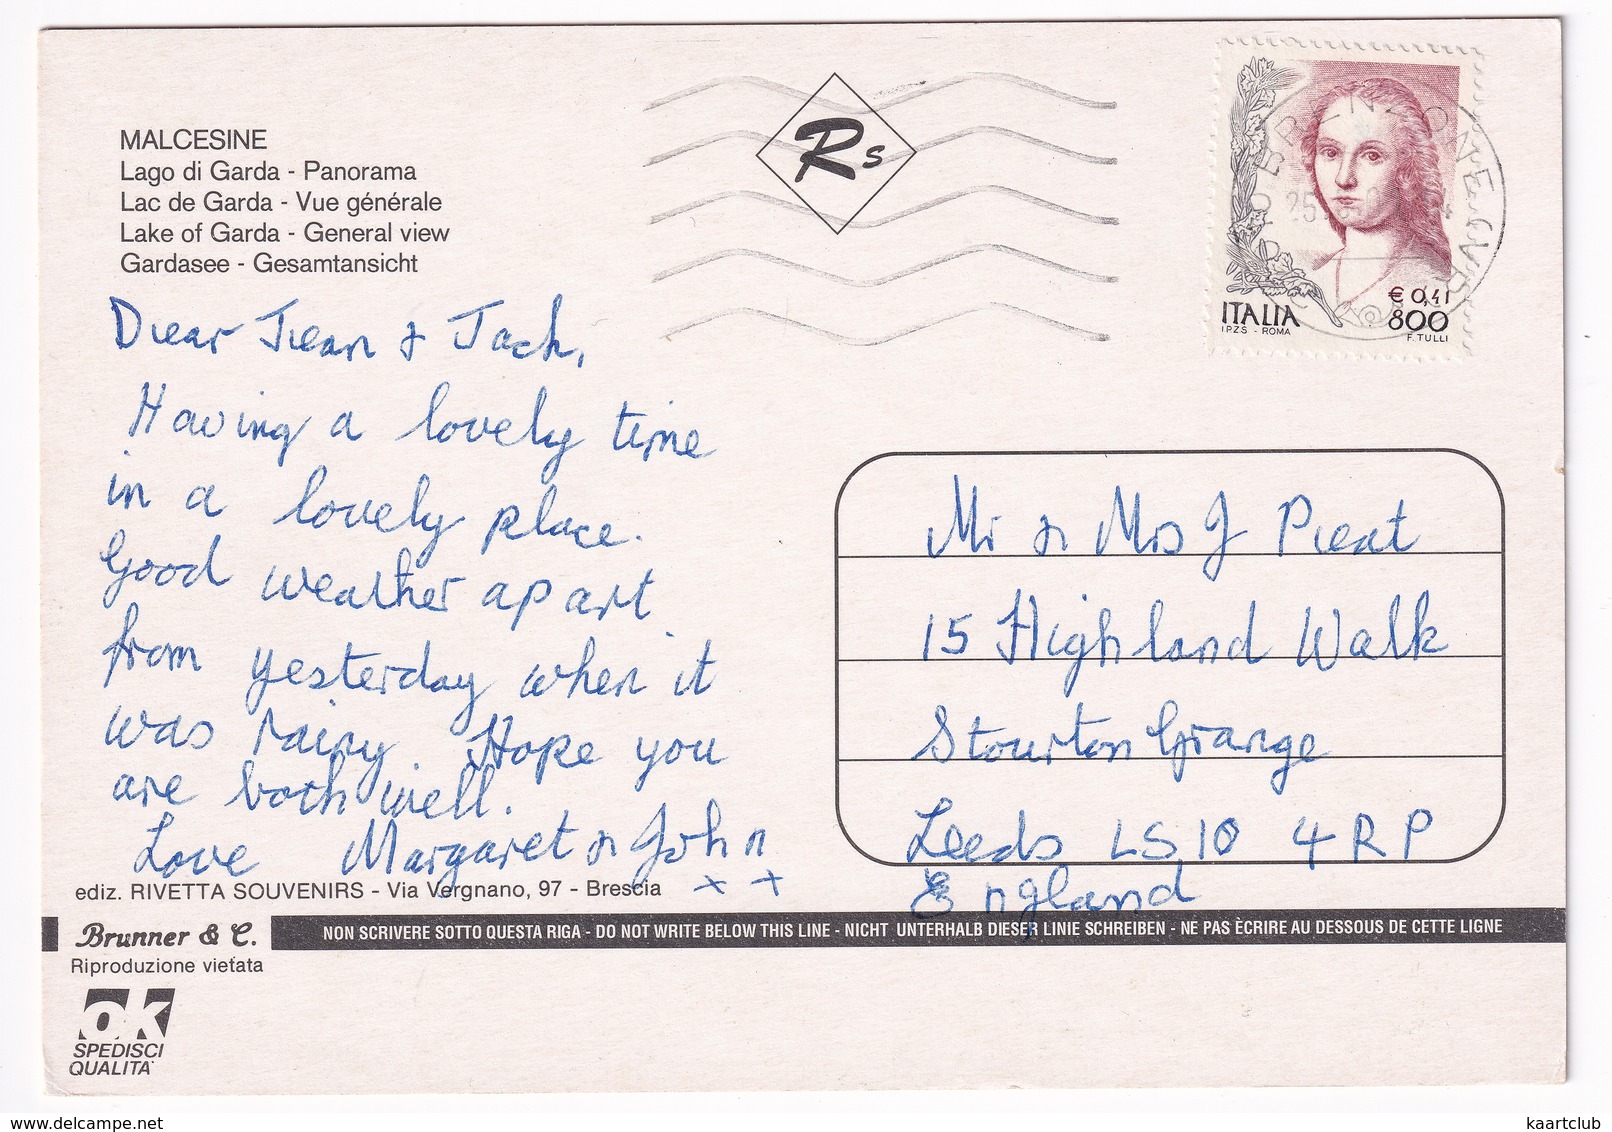 MALCESINE
Lago di Garda - Panorama
Lac de Garda - Vue générale
Lake of Garda - General view
Gardasee - Gesamtansicht
Rs
ITALIA
I.P.Z.S. - ROMA
€ 0,41
800
F. TULLI
Dear Jean & Jack,
Having a lovely time
in a lovely place.
Good weather apart
from yesterday when it
was rainy. Hope you
are both well.
Love Margaret & John
x x
Mr & Mrs J Peat
15 Highland Walk
Stourton Grange
Leeds LS10 4RP
England
ediz. RIVETTA SOUVENIRS - Via Vergnano, 97 - Brescia
Brunner & C.
NON SCRIVERE SOTTO QUESTA RIGA - DO NOT WRITE BELOW THIS LINE - NICHT UNTERHALB DIESER LINIE SCHREIBEN - NE PAS ÈCRIRE AU DESSOUS DE CETTE LIGNE
Riproduzione vietata
ok
SPEDISCI
QUALITA'
kaartclub